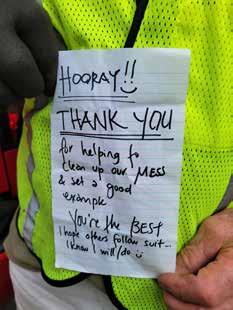 HOORAY!!
THANK YOU
for helping to
clean up our MESS
& set a good
example
You're the BEST
I hope others follow suit...
I know I will/do